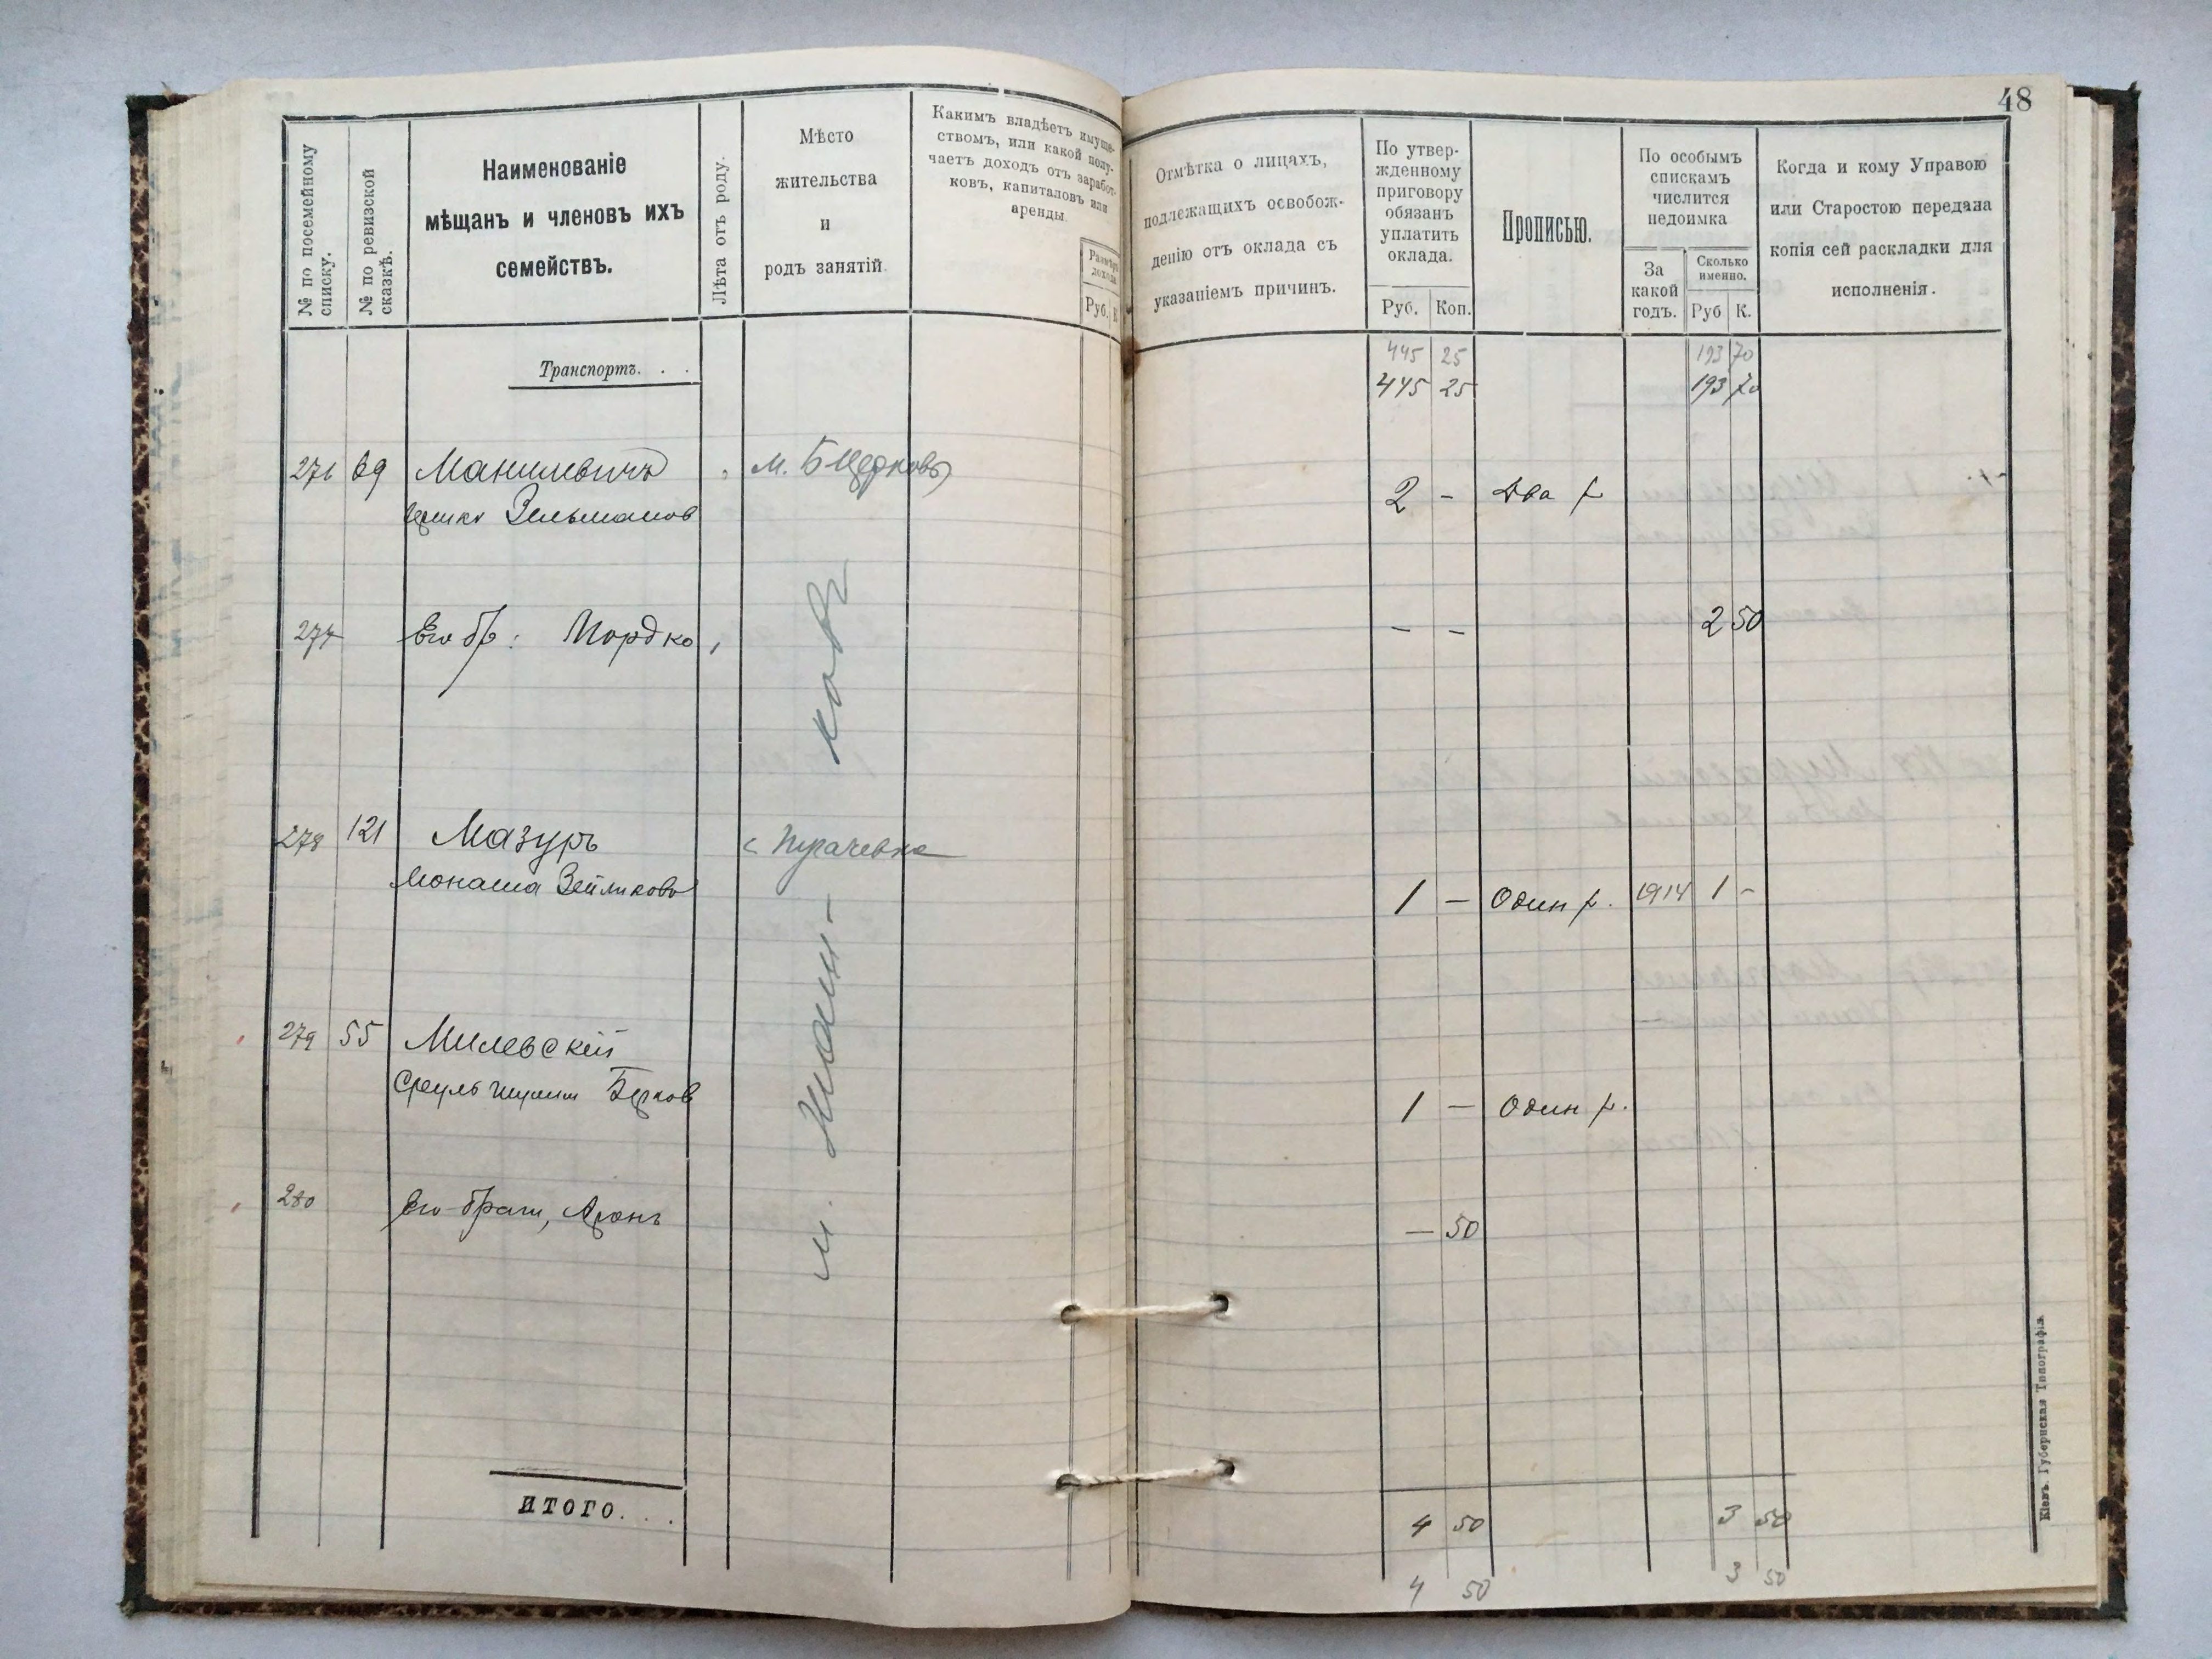 48
№ по посемейному
списку.
№ по ревизской
сказкѣ.
Наименованіе
мѣщанъ и членовъ ихъ
семействъ.
Лѣта отъ роду.
Мѣсто
жительства
и
родъ занятій.
Какимъ владѣетъ имуще-
ствомъ, или какой полу-
чаетъ доходъ отъ заработ-
ковъ, капиталовъ или
аренды.
Размѣръ
дохода
Руб. К
Отмѣтка о лицахъ,
подлежащихъ освобож-
денію отъ оклада съ
указаніемъ причинъ.
По утвер-
жденному
приговору
обязанъ
уплатить
оклада.
Руб. Коп.
Прописью.
По особымъ
спискамъ
числится
недоимка
За
какой
годъ.
Сколько
именно.
Руб К.
Когда и кому Управою
или Старостою передана
копія сей раскладки для
исполненія.
Транспортъ. . .
445 25 193 70
445 25 193 70
276 69 Манилевичъ м. Б Церковь
Зельманов 2 - Два р
277 Его бр: Мордко - - 2 50
278 121 Мазуръ с Пугачевка
Монаша Зейликовъ 1 - Один р. 1914 1 -
279 55 Милевскій
Сруль Берков 1 - Один р.
280 Его брат, Аронъ - 50
м. Жаш-
ковъ
ИТОГО. . .
4 50 3 50
4 50 3 50
Кіевъ. Губернская Типографія.